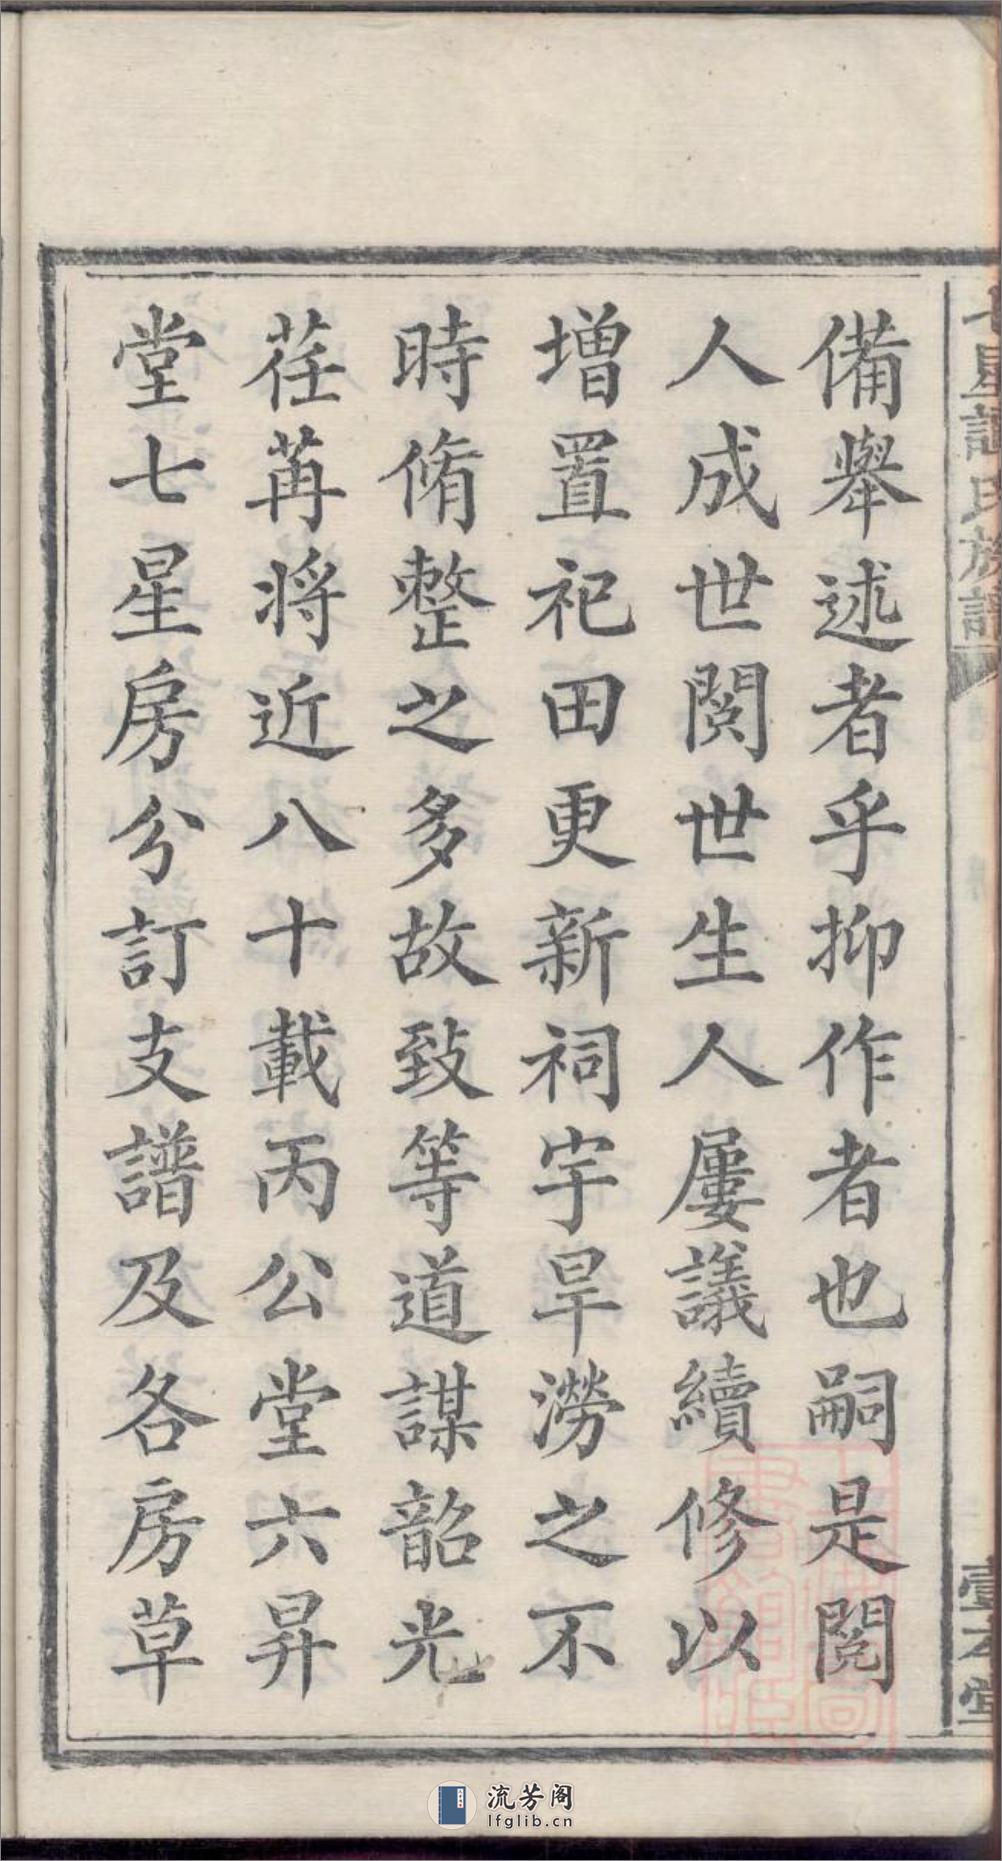 備舉述者乎抑作者也嗣是閱
人成世閱世生人屢議續修以
增置祀田更新祠宇旱澇之不
時脩整之多故致等道謀韶光
荏苒將近八十載丙公堂六昇
堂七星房分訂支譜及各房草
七星譚氏族譜
壹本堂
流芳阁
lfglib.cn